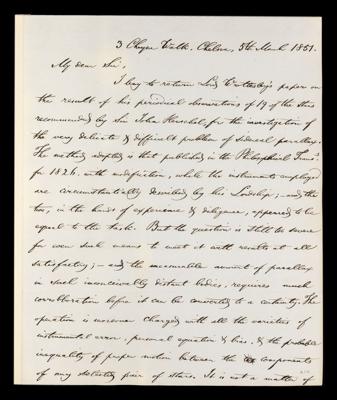 3 Cheyne Walk. Chelsea, 5th March 1851.
My dear Sir,
I beg to return Lord Wrottesley's paper on
the result of his periodical observations of 19 of the stars
recommended by Sir John Herschel, for the investigation of
the very delicate & difficult problem of sidereal parallax.
The method adopted is that published in the Philosophical Transns
for 1826, with modification, while the instruments employed
are circumstantially described by his Lordship;—and, these
too, in the hands of experience & diligence, appeared to be
equal to the task. But the question is still too severe
for even such means to meet it with results at all
satisfactory;—and the uncountable amount of parallax
in such inconceivably distant bodies, requires much
corroboration before it can be converted to a certainty. The
operation is moreover charged with all the varieties of
instrumental error, personal equation & bias, & the probable
inequality of proper motion between the components
of any selected pair of stars. It is not a matter of